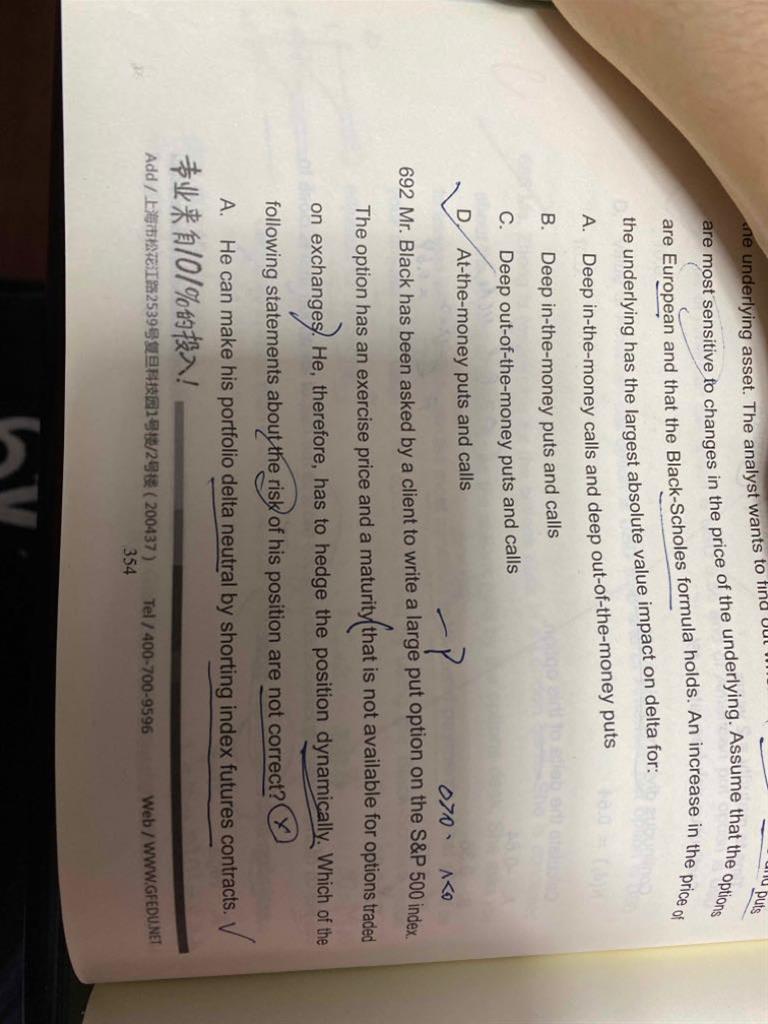 the underlying asset. The analyst wants to find out
and puts
are most sensitive to changes in the price of the underlying. Assume that the options
are European and that the Black-Scholes formula holds. An increase in the price of
the underlying has the largest absolute value impact on delta for:
A. Deep in-the-money calls and deep out-of-the-money puts
B. Deep in-the-money puts and calls
C. Deep out-of-the-money puts and calls
D. At-the-money puts and calls
-P
692 Mr. Black has been asked by a client to write a large put option on the S&P 500 index.
The option has an exercise price and a maturity that is not available for options traded
on exchanges. He, therefore, has to hedge the position dynamically. Which of the
following statements about the risk of his position are not correct?
A. He can make his portfolio delta neutral by shorting index futures contracts.
专业来自101%的投入!
Add / 上海市松花江路2539号复旦科技园1号楼/2号楼 ( 200437 ) Tel / 400-700-9596 Web / WWW.GFEDU.NET
354